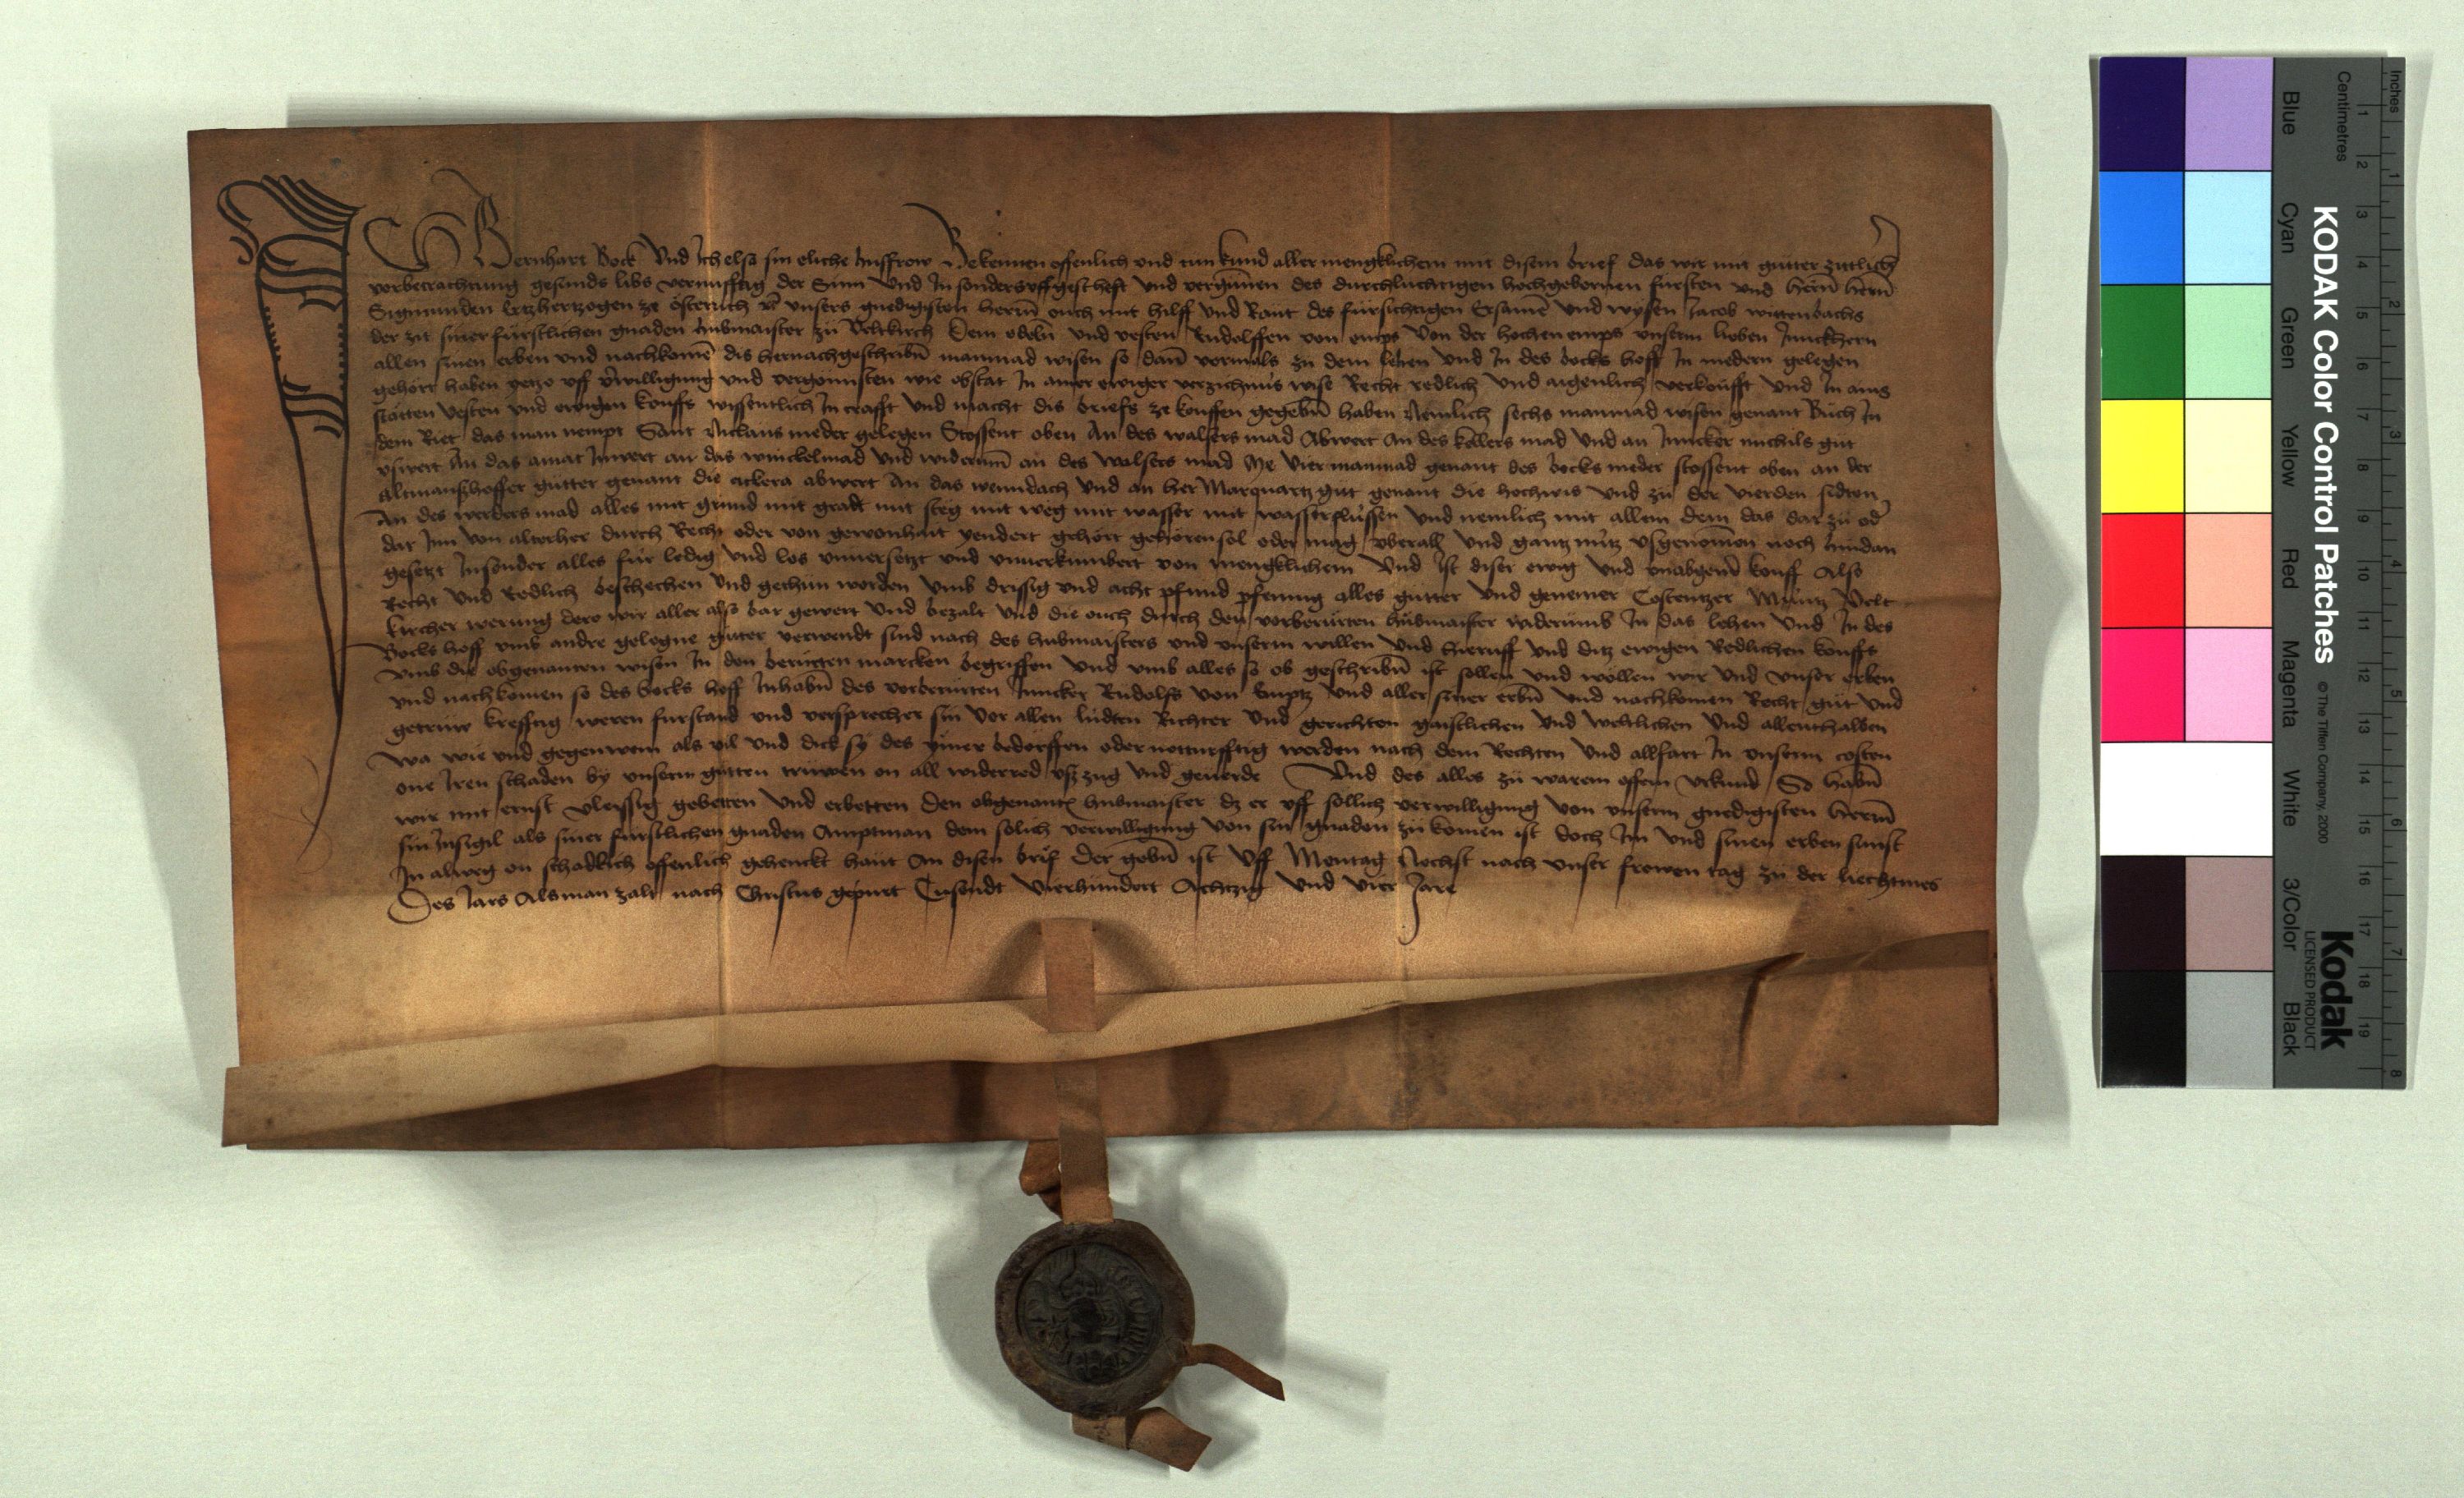 Ich Bernhart Bock Und Ich elsa sin eliche husfrow Bekennen offenlich und tun kund aller mengklichem mit disem brief das wir mit gůtter zittlich
vorbetrachtung gesunds libs vernufftig der Sinn und In sonders uffgescheft und vergunen des durchluchtigen hochgebornen fursten und hern hern
Sigmunden Ertzhertzogen ze osterrich unsers gnedigisten herrn ouch mit hilff und Raut des fursichtigen Ersamen und wysen Jacob wittenbachs
der zit siner furstlichen gnaden hubmaister zů Veltkirch Dem edeln und vesten Rudolffen von emps von der hochen emps unserm lieben Junckhern
allen sinen erben und nachkomen dis hernachgeschribn manmad wisen so dann vormals zu dem lehen und In des bocks hoff In medern gelegen
gehört haben yetzo uff verwilligung und vergonnsten wie obstat In ainer ewiger verzichnus wise Recht redlich und aigenlich verkoufft und In ains
stätten vesten und ewigen kouffs wissentlich In crafft und macht dis briefs ze kouffen gegebn haben Nemlich sechs manmad wisen genant Buch In
dem Riet das man nempt Sant Niclaus meder gelegen Stossent oben An des walsers mad Abwert An des kellers mad und an Juncker michils gut
uswert An das amat Inwert an das winckelmad und widerum an des walsers mad Me vier manmad genant des bocks meder stossent oben an der
altmanßhoffer gůtter genant die ackera abwert An das wenndach und an her Marquartz gut genant die hochwis und zů der vierden sidten
An des werders mad alles mit grund mit gradt mit steg mit weg mit wasser mit wasserflussen und nemlich mit allem dem das dar zů od
dar Inn von alterher durch Recht oder von gewonhait yendert gehört gehören sol oder mag uberall und gantz nutz usgenomen noch hindan
gesetzt Insonder alles für ledig und los unversetzt und unverkumbert von mengklichem Und Ist diser ewig und unabgend kouff Also
Recht und Redlich beschechen und gethun worden umb drissig und acht pfund pfenning alles gůtter und genemer Costentzer Muntz Velt
kircher werung dero wir aller also bar gewert und bezalt und die ouch durch den vorberurten hubmaister widerumb In das lehen und In des
Bocks hoff umb andre gelegne gůter verwendt sind nach des hubmaisters und unserm willen und hieruff und ditz ewigen Redlichen kouffs
umb die obgenanten wisen In den berurten marcken begriffen und umb alles so ob geschribn ist sollen und wöllen wir und unser erben
und nachkomen so des bocks hoff Inhabn des vorberurten Juncker Rudolfs von Emptz und aller siner erbn und nachkomen Recht gůt und
getruw kreffig weren furstand und versprecher sin vor allen ludten Richter und gerichten gaistlichen und weltlichen und allenthalben
wa wie und gegen wem als vil und dick sy des ymer bedorffen oder notturfftig werden nach dem Rechten und allfart In unserm costen
one Iren schaden by unsern gůtten truwen on all widerred uszzug und geverde Und des alles zů warem offem urkund So habn
wir mit ernst vleyssig gebetten und erbetten den obgenanten hubmaister dz er uff sollich verwilligung von unserm gnedigisten herrn
sin Insigil als siner furstlichen gnaden Amptman dem solich verwilligung von sin gnaden zů komen ist doch Im und sinen erben sunst
In alweg on schadlich offenlich gehenckt haut An disen brif Der gebn ist Uff Mentag Nechst nach unser frowen tag zů der liechtmes
Des Jars Als man zalt nach Christus gepurt Tusendt Vierhundert Achtzig und vier Jare
KODAK Color Control Patches © The Tiffen Company, 2000
Kodak
LICENSED PRODUCT
Blue Cyan Green Yellow Red Magenta White 3/Color Black
Inches 1 2 3 4 5 6 7 8
Centimetres 1 2 3 4 5 6 7 8 9 10 11 12 13 14 15 16 17 18 19